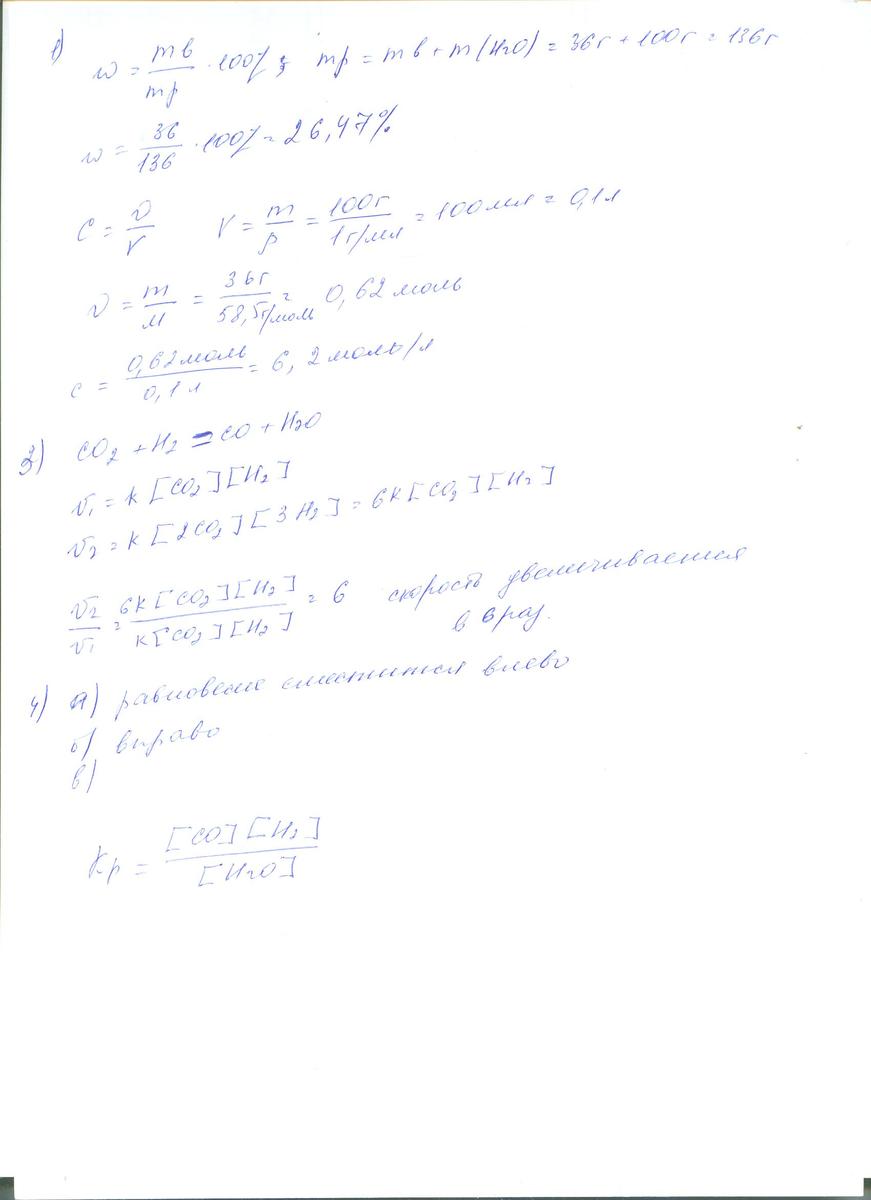 1) w = mв/mр · 100% ; mр = mв + m(H2O) = 36г + 100г = 136г
w = 36/136 · 100% = 26,47%
C = ν/V V = m/ρ = 100г/1г/мл = 100мл = 0,1л
ν = m/M = 36г/58,5г/моль = 0,62 моль
c = 0,62моль/0,1л = 6,2 моль/л
3) CO2 + H2 = CO + H2O
v1 = k [CO2][H2]
v2 = k [2CO2][3H2] = 6k[CO2][H2]
v2/v1 = 6k[CO2][H2]/k[CO2][H2] = 6 скорость увеличивается
в 6 раз.
4) а) равновесие сместится влево
б) вправо
в)
Kр = [CO][H2]/[H2O]